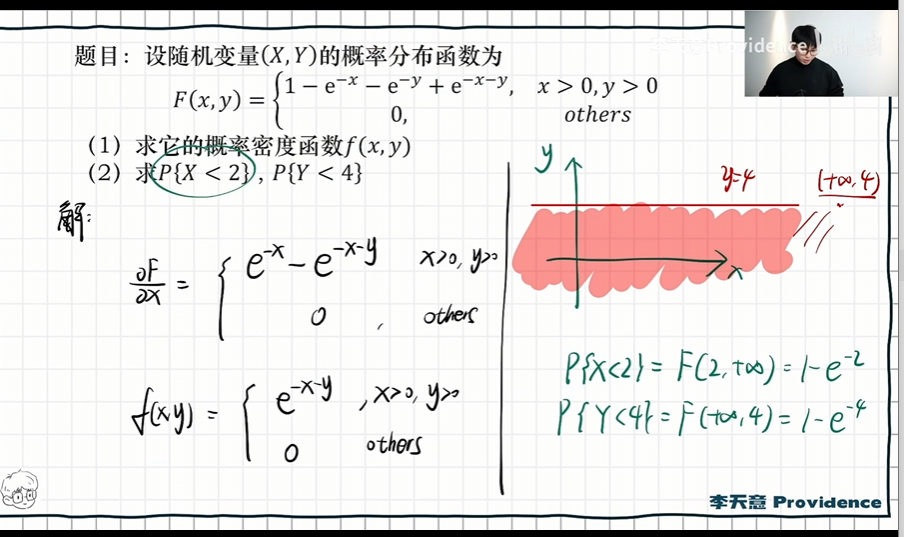 题目：设随机变量(X,Y)的概率分布函数为
F(x,y) = {1 − e^{−x} − e^{−y} + e^{−x−y}, x > 0, y > 0
0, others
（1）求它的概率密度函数f(x,y)
（2）求P{X < 2}, P{Y < 4}
解:
∂F/∂x = { e^{-x} - e^{-x-y} x>0, y>0
0 , others
f(x,y) = { e^{-x-y} , x>0, y>0
0 others
y
y=4
(+∞, 4)
x
P{X<2} = F(2, +∞) = 1-e^{-2}
P{Y<4} = F(+∞, 4) = 1-e^{-4}
李天意 Providence